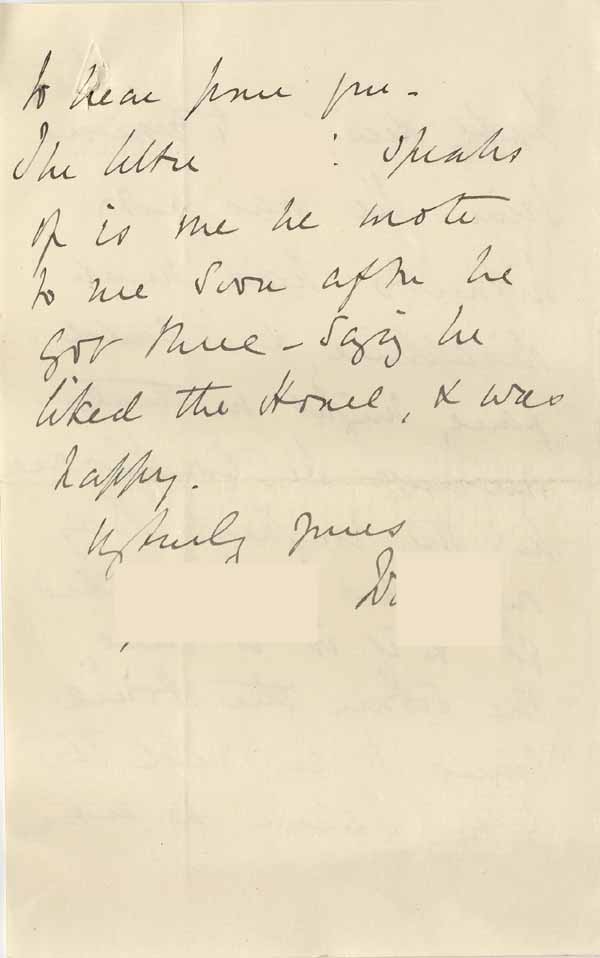 to hear from you -
The letter speaks
of is one he wrote
to me soon after he
got there - saying he
liked the Home, & was
happy.
truly yours